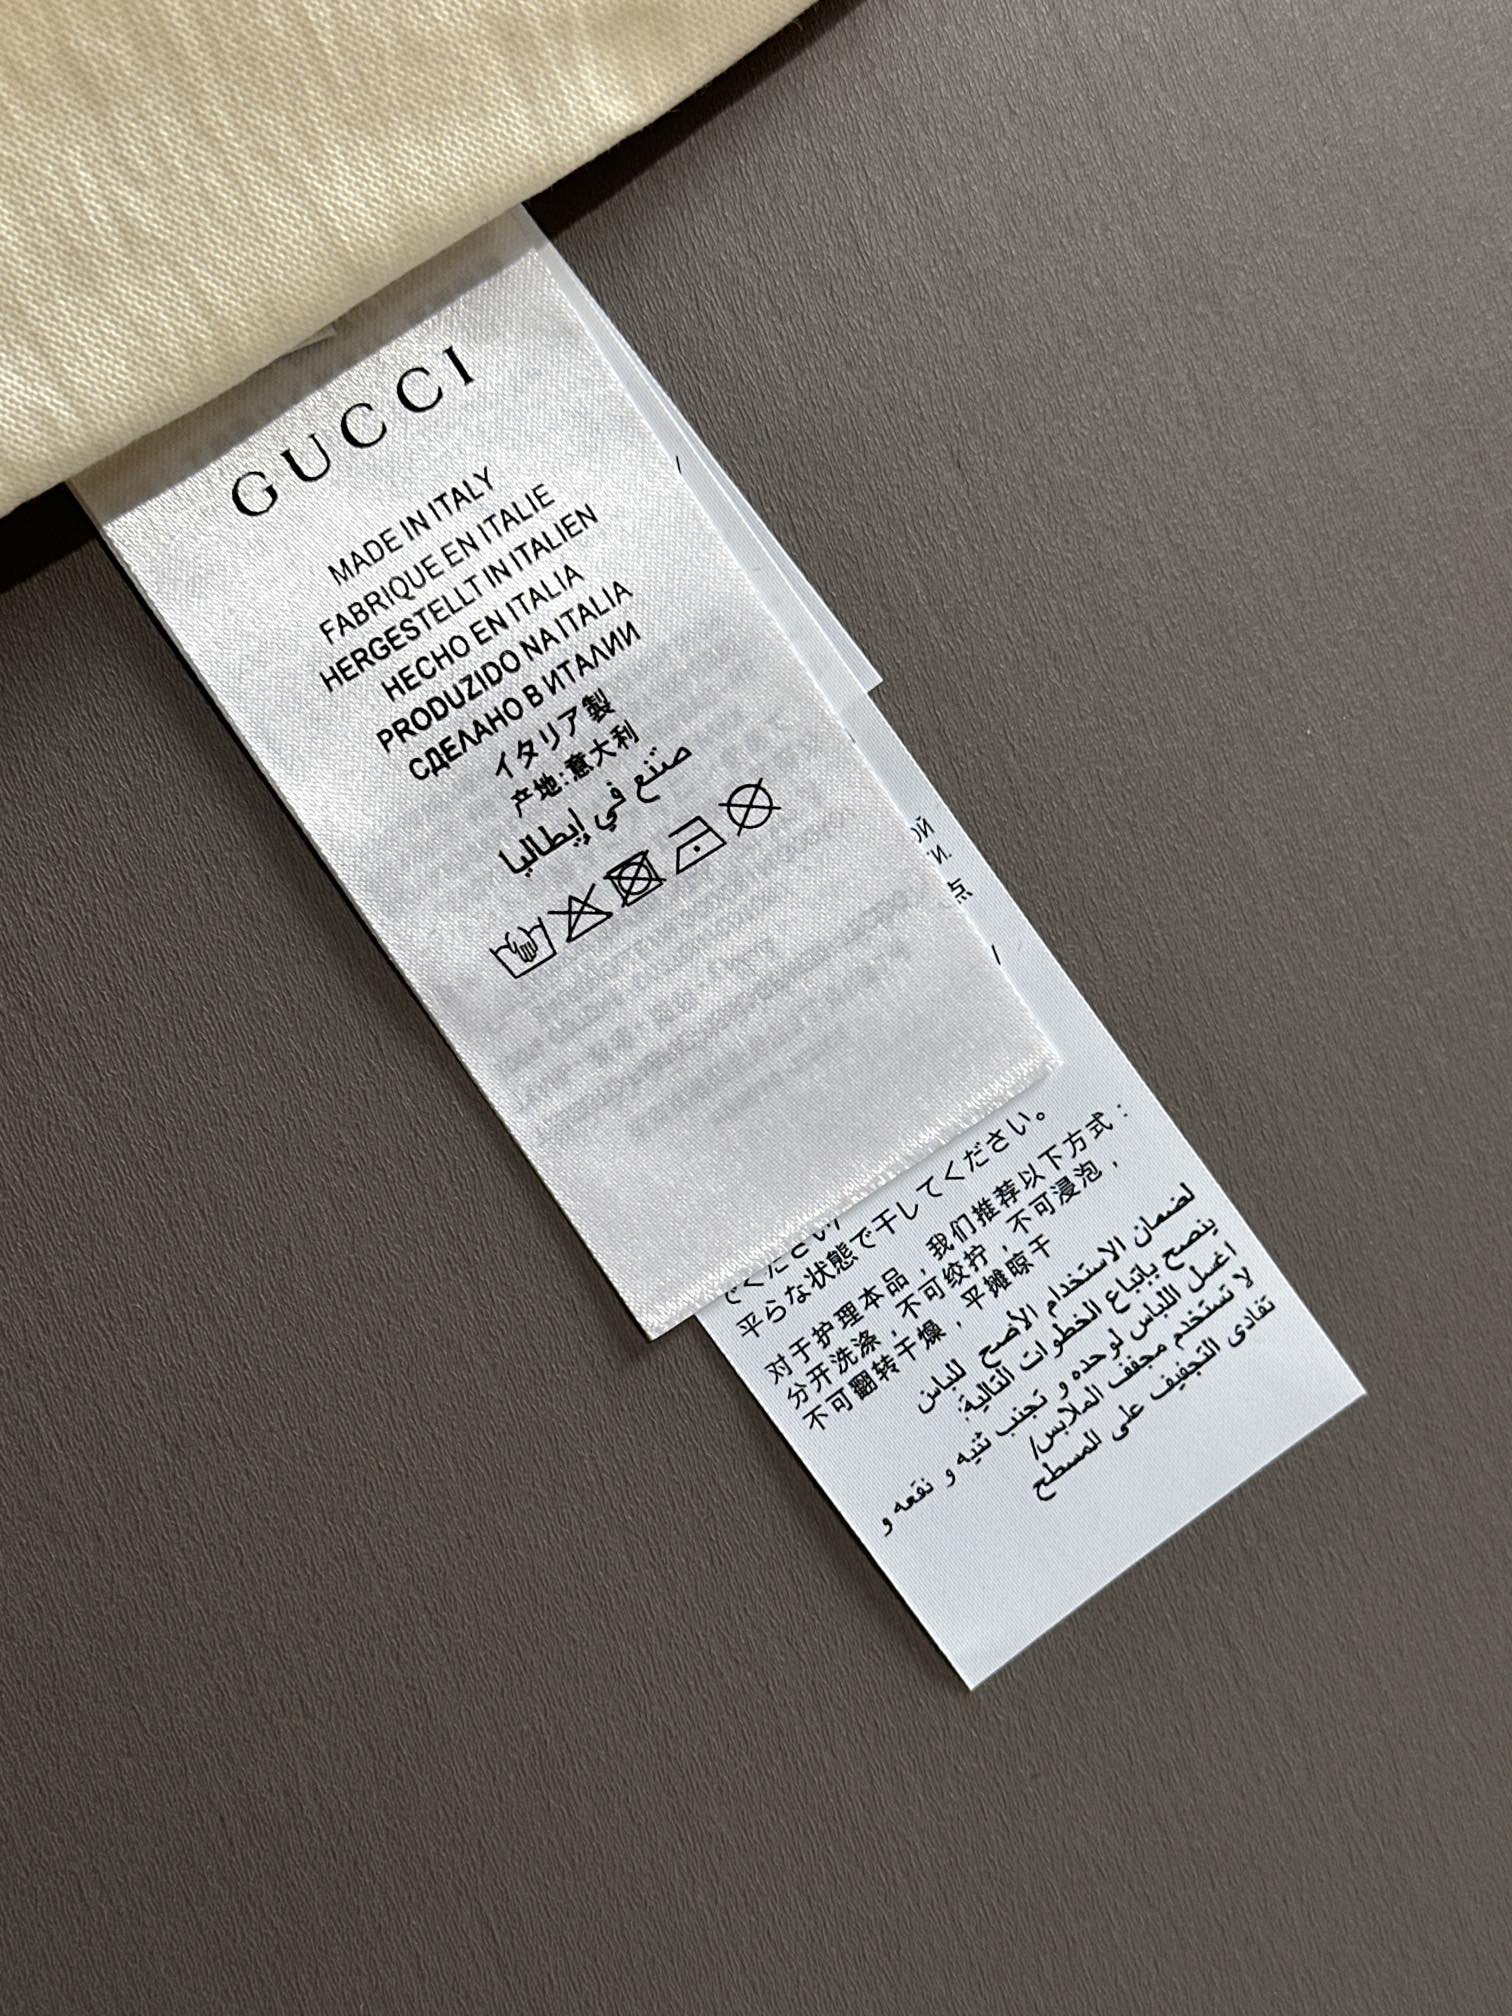 GUCCI
MADE IN ITALY
FABRIQUE EN ITALIE
HERGESTELLT IN ITALIEN
HECHO EN ITALIA
PRODUZIDO NA ITALIA
СДЕЛАНО В ИТАЛИИ
イタリア製
产地:意大利
صنع في إيطاليا
点
てください
平らな状態で干してください。
对于护理本品，我们推荐以下方式：
分开洗涤，不可绞拧，不可浸泡，
不可翻转干燥，平摊晾干
لضمان الاستخدام الأصح للباس
ينصح بإتباع الخطوات التالية:
اغسل اللباس لوحده و تجنب ثنيه و نقعه و
لا تستخدم مجفف الملابس/
تفادى التجفيف على المسطح